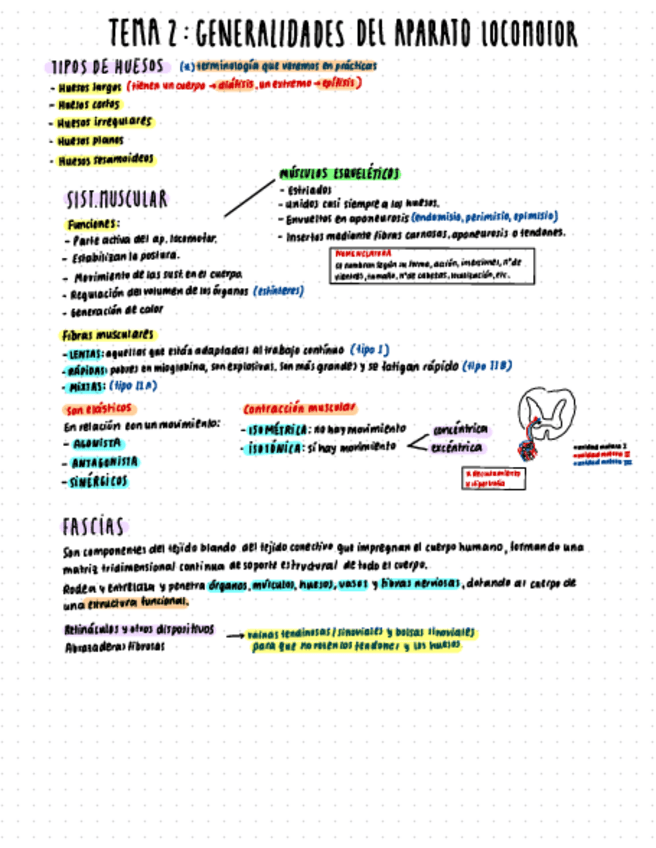 TEMA 2: GENERALIDADES DEL APARATO LOCOMOTOR
TIPOS DE HUESOS (a) terminología que veremos en prácticas
- Huesos largos (tienen un cuerpo → diáfisis, un extremo → epífisis)
- Huesos cortos
- Huesos irregulares
- Huesos planos
- Huesos sesamoideos
MÚSCULOS ESQUELÉTICOS
- Estriados
- Unidos casi siempre a los huesos.
- Envueltos en aponeurosis (endomisio, perimisio, epimisio)
- Insertos mediante fibras carnosas, aponeurosis o tendones.
NOMENCLATURA
se nombran según su forma, acción, inserciones, nº de
vientres, tamaño, nº de cabezas, localización, etc.
SIST. MUSCULAR
Funciones:
- Parte activa del ap. locomotor.
- Estabilizan la postura.
- Movimiento de las sust. en el cuerpo.
- Regulación del volumen de los órganos (esfínteres)
- Generación de calor
Fibras musculares
- LENTAS: aquellas que están adaptadas al trabajo continuo (tipo I)
- RÁPIDAS: pobres en mioglobina, son explosivas. Son más grandes y se fatigan rápido (tipo II B)
- MIXTAS: (tipo II A)
Son elásticos
En relación con un movimiento:
- AGONISTA
- ANTAGONISTA
- SINÉRGICOS
Contracción muscular
- ISOMÉTRICA: no hay movimiento
- ISOTÓNICA: sí hay movimiento
concéntrica
excéntrica
unidad motora I
unidad motora II
unidad motora III
FASCIAS
Son componentes del tejido blando del tejido conectivo que impregnan el cuerpo humano, formando una
matriz tridimensional continua de soporte estructural de todo el cuerpo.
Rodea y entrelaza y penetra órganos, músculos, huesos, vasos y fibras nerviosas, dotando al cuerpo de
una estructura funcional.
Retináculos y otros dispositivos → vainas tendinosas/sinoviales y bolsas sinoviales
Abrazaderas fibrosas para que no rocen los tendones y los huesos